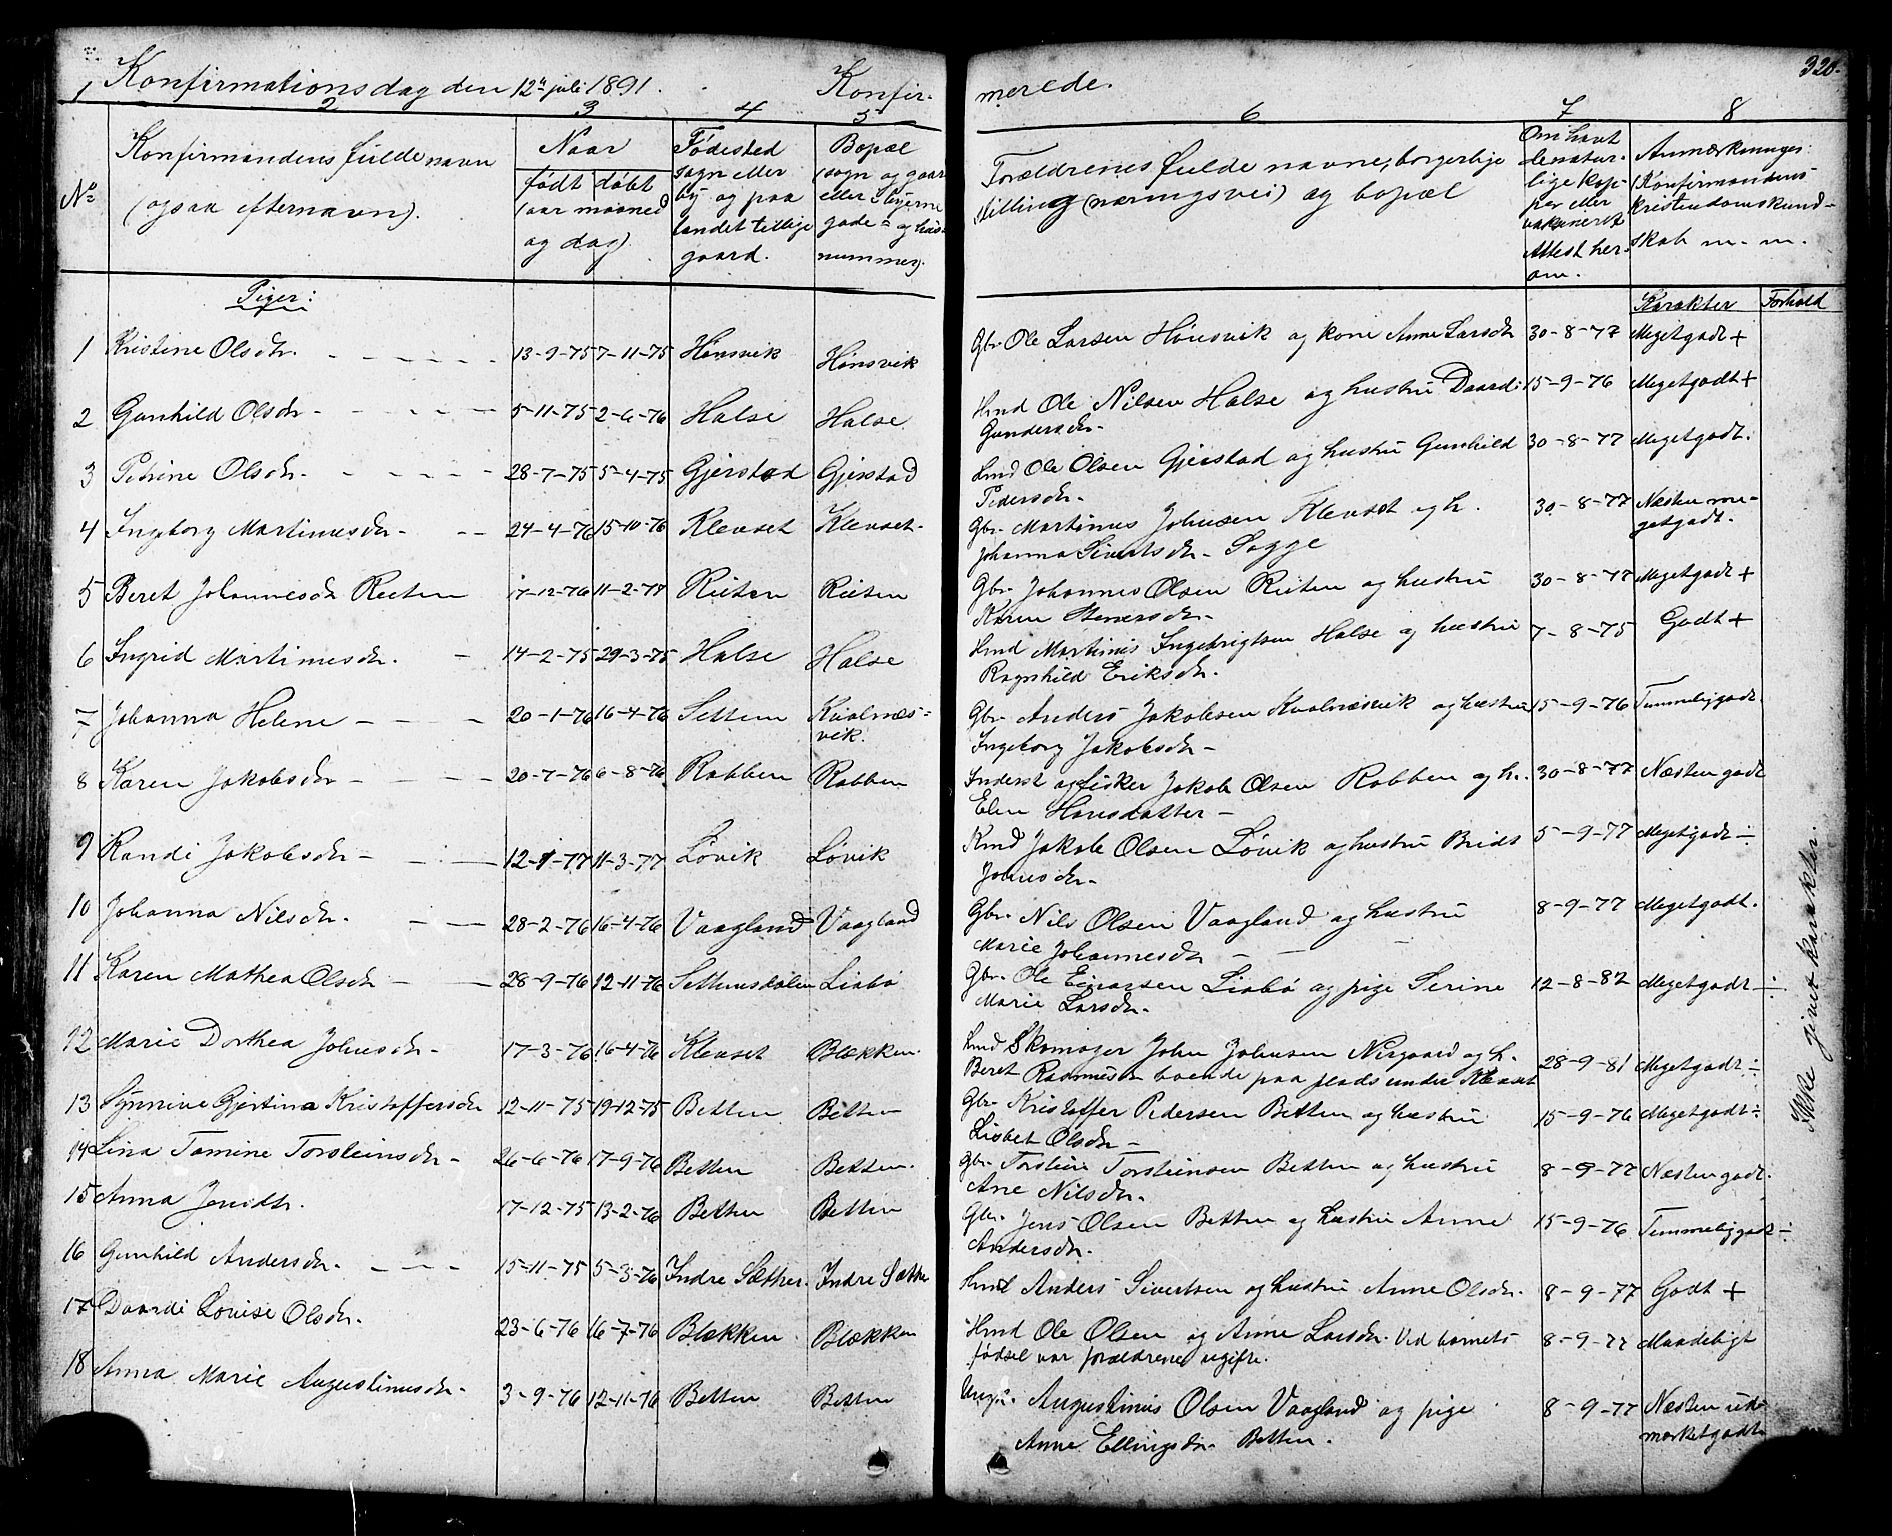 320.
1 Konfirmationsdag den 12te juli 1891. Konfir- merede.
2 3 4 5 6 7 8
No Konfirmandens fulde navn (ogsaa efternavn).
Naar
født døbt
(aar maaned og dag).
Fødested sogn eller by og paa landet tillige gaard.
Bopæl (sogn og gaard eller i byerne gade- og husnummer).
Forældrenes fulde navne, borgerlige stilling (næringsvei) og bopæl
Om havt denaturlige kopper eller vakcineret Attest herom.
Anmærkninger: (Konfirmandens kristendomskundskab m. m.
Karakter Forhold
Piger:
1 Kristine Olsdtr. 13-9-75 7-11-75 Hønsvik Hønsvik Gbr. Ole Larsen Hønsvik og kone Anne Larsdtr 30-8-77 Megetgodt +
2 Gunhild Olsdtr - 5-11-75 2-6-76 Halse Halse Hmd Ole Nilsen Halse og hustru Daardi 15-9-76 Megetgodt +
Gundersdtr-
3 Petrine Olsdtr. 28-7-75 5-4-75 Gjerstad Gjerstad Hmd Ole Olsen Gjerstad og hustru Gunhild 30-8-77 Megetgodt.
Pedersdtr-
4 Ingeborg Martinusdtr- 24-4-76 15-10-76 Klevset Klevset- Gbr. Martinus Johnsen Klevset og h. 30-8-77 Næsten me-
Johanna Sivertsdtr- Sogge getgodt.
5 Beret Johannesdtr Reeten 17-12-76 11-2-77 Rieten Rieten Gbr. Johannes Olsen Rieten og hustru 30-8-77 Megetgodt +
Karen Stenersdtr-
6 Ingrid Martinusdtr. 14-2-75 29-3-75 Halse Halse Hmd Martinus Ingebrigtsen Halse og hustru 7-8-75 Godt +
Ragnhild Eriksdtr.
7 Johanna Helene - 20-1-76 16-4-76 Settem Kvalnæs- Gbr. Anders Jakobsen Kvalnæsvik og hustru 15-9-76 Temmeliggodt
vik. Ingeborg Jakobsdtr-
8 Karen Jakobsdtr - 20-7-76 6-8-76 Rabben Rabben Inderst og fisker Jakob Olsen Rabben og h. 30-8-77 Næsten godt
Elen Hansdatter -
9 Randi Jakobsdtr - 12-1-77 11-3-77 Løvik Løvik Kmd Jakob Olsen Løvik og hustru Brit 5-9-77 Megetgodt ÷
Jonsdtr-
10 Johanna Nilsdtr. 28-2-76 16-4-76 Vaagland Vaagland Gbr. Nils Olsen Vaagland og hustru 8-9-77 Megetgodt.
Marie Johannesdtr -
11 Karen Mathea Olsdtr - 28-9-76 12-11-76 Settemsdalen Liabø Gbr. Ole Einarsen Liabø og pige Serine 12-8-82 Megetgodt ÷
Marie Larsdtr.
12 Marie Dorthea Johnsdtr- 17-3-76 16-4-76 Klevset Blækken. Hmd Skomager John Johnsen Nirgaard og h. 28-9-81 Megetgodt ÷
Beret Rasmusdtr boende paa plads under Klevset
13 Synnive Gjertina Kristoffersdtr 12-11-75 19-12-75 Betten Betten Gbr. Kristoffer Pedersen Betten og hustru 15-9-76 Megetgodt ÷
Lisbet Olsdtr -
14 Lina Tomine Torsteinsdtr - 26-6-76 17-9-76 Betten Betten. Gbr. Torstein Torsteinsen Betten og hustru 8-9-77 Næsten godt.
Ane Nilsdtr.
15 Anna Jensdtr. 17-12-75 13-2-76 Betten Betten Gbr. Jens Olsen Betten og hustru Anne 15-9-76 Temmeliggodt ÷
Andersdtr.
16 Gunhild Andersdtr. 15-11-75 5-3-76 Indre Sæther. Indre Sæther Hmd Anders Sivertsen og hustru Anne Olsdtr. 8-9-77 Godt +
17 Daardi Lovise Olsdtr. 23-6-76 16-7-76 Blækken Blækken Hmd Ole Olsen og Anne Larsdtr. Ved barnets 8-9-77 Maadeligt
fødsel var forældrene ugifte.
18 Anna Marie Augustinusdtr. 3-9-76 12-11-76 Betten Betten Ungk. Augustinus Olsen Vaagland og pige 8-9-77 Næsten ud-
Anne Ellingsdtr. Betten. mærketgodt
Ikke givet karakter.